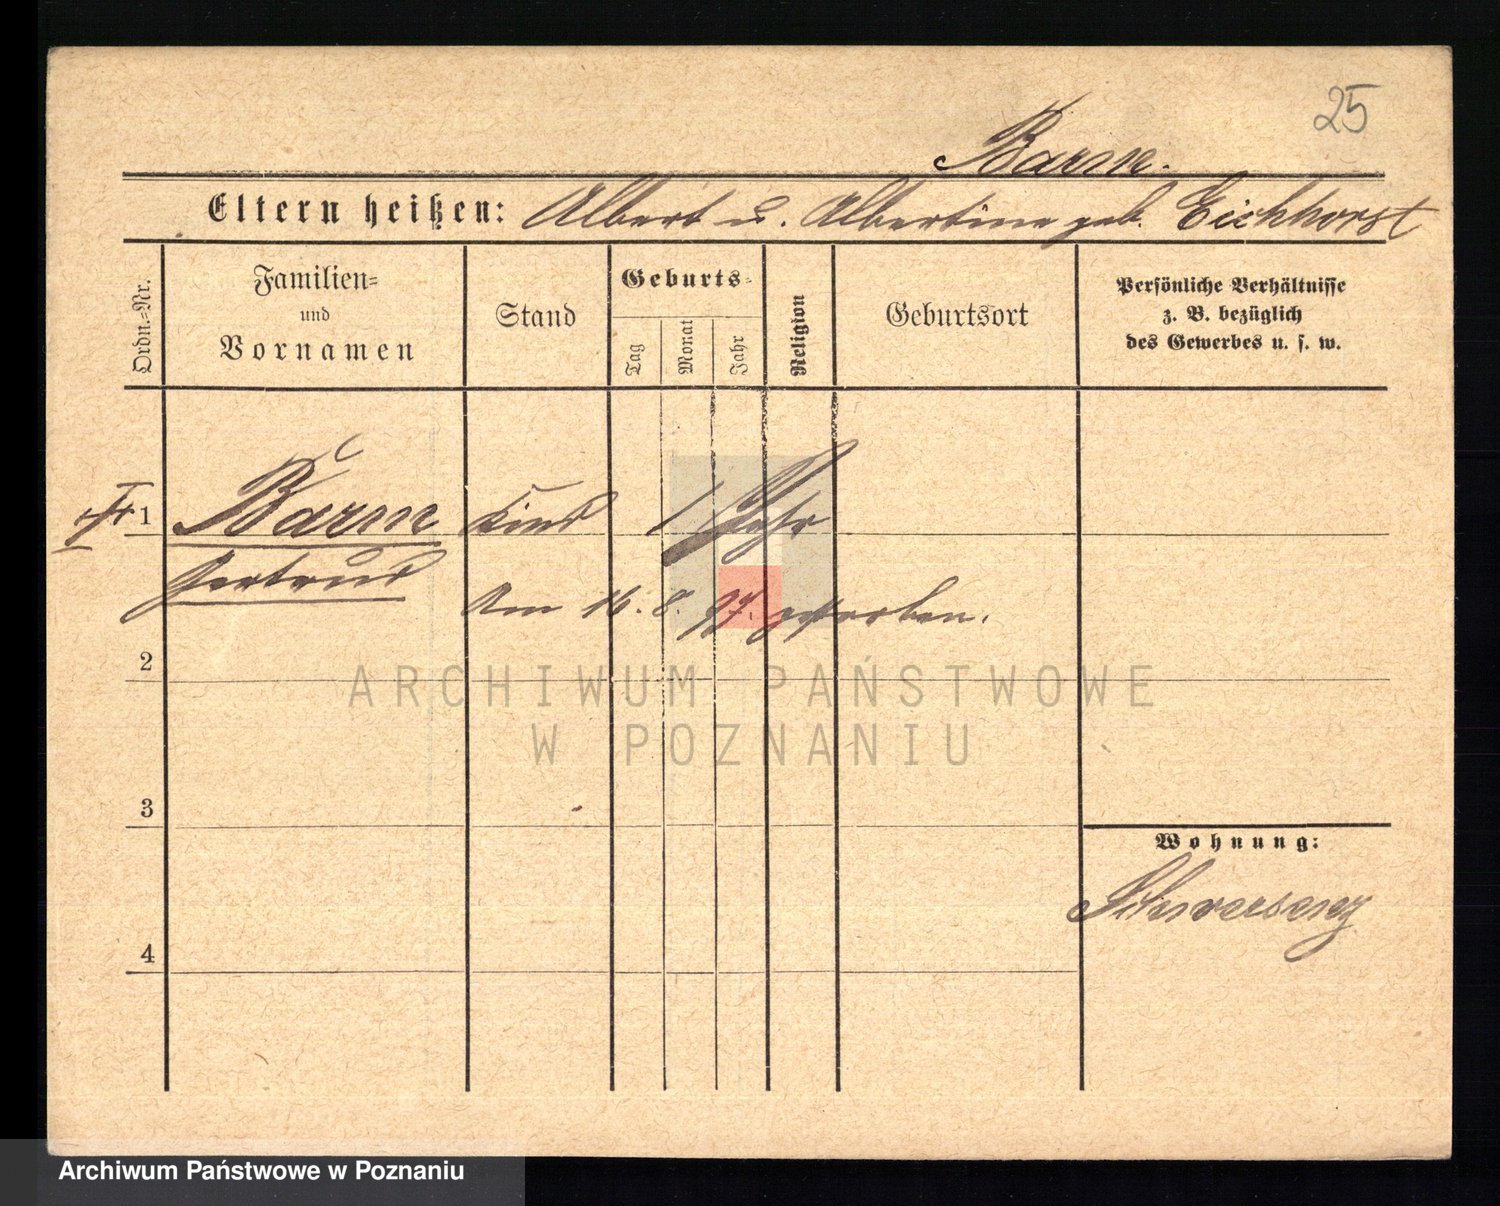 25
Barm.
Eltern heißen: Albert u. Albertine geb. Eichhorst
Ordn.=Nr.
Familien=
und
Vornamen
Stand
Geburts=
Tag
Monat
Jahr
Religion
Geburtsort
Persönliche Verhältnisse
z. B. bezüglich
des Gewerbes u. s. w.
1 Barm Kind 1 Jahr
Gertrud
Am 16. 8. 97. gestorben.
2
ARCHIWUM PAŃSTWOWE
W POZNANIU
3
Wohnung:
Schwersenz
4
Archiwum Państwowe w Poznaniu